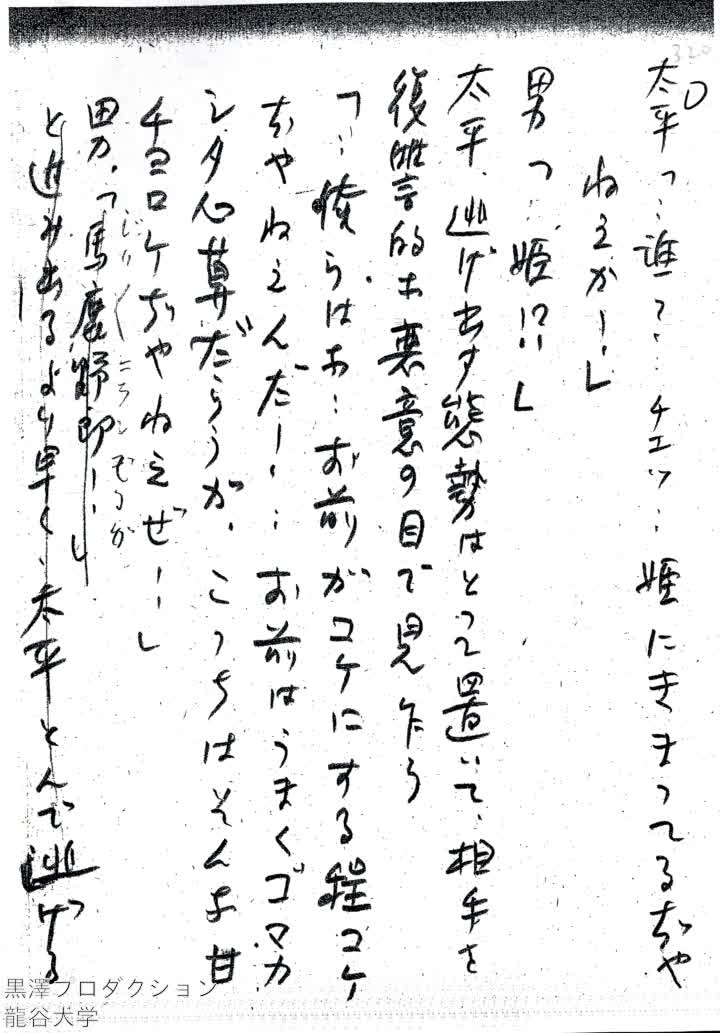 320
太平「‥誰?‥チェッ‥姫にきまってるぢや
ねえか!」
男「‥姫!?」
太平、逃げ出す態勢はとって置いて、相手を
復讐的な悪意の目で見乍ら
「‥俺らはな‥お前がコケにする程コケ
ぢやねえんだ!‥お前はうまくゴマカ
シタ心算だらうが、こっちはそんな甘
チョロケぢやねえぜ!!」
男、「馬鹿野郎!!」
と進み出るより早く、太平とんで逃げる
黒澤プロダクション
龍谷大学